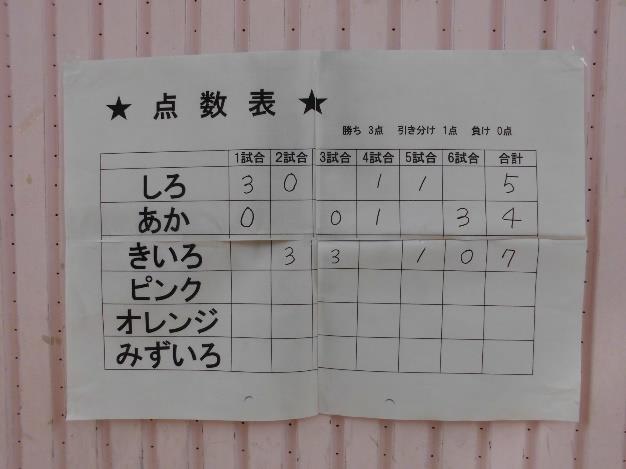 ★ 点数表 ★
勝ち 3点 引き分け 1点 負け 0点
1試合 2試合 3試合 4試合 5試合 6試合 合計
しろ 3 0 1 1 5
あか 0 0 1 3 4
きいろ 3 3 1 0 7
ピンク
オレンジ
みずいろ